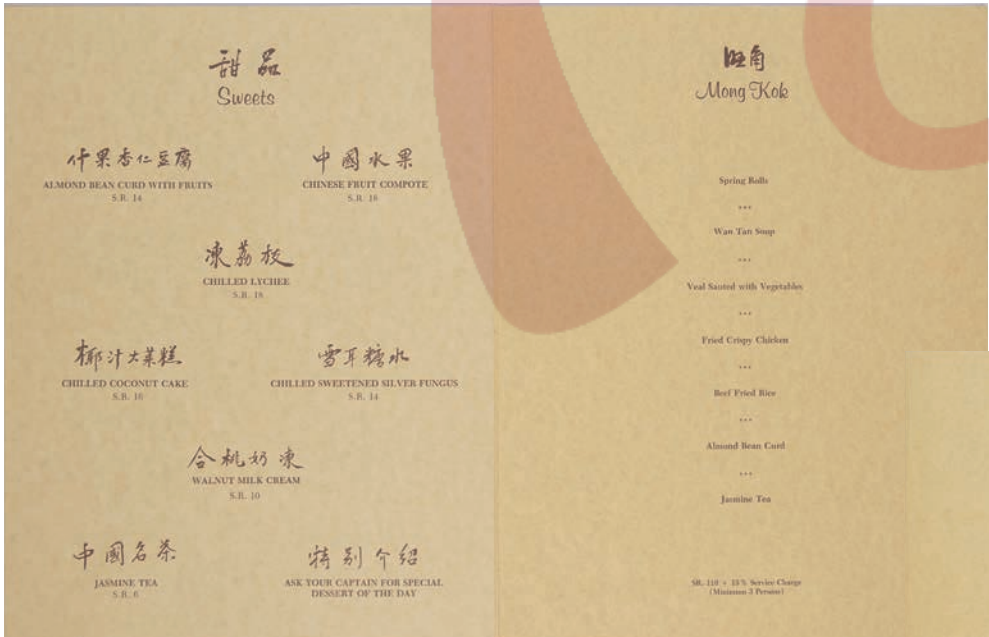 甜品
Sweets
什果杏仁豆腐
ALMOND BEAN CURD WITH FRUITS
S.R. 14
中國水果
CHINESE FRUIT COMPOTE
S.R. 18
凍荔枝
CHILLED LYCHEE
S.R. 18
椰汁大菜糕
CHILLED COCONUT CAKE
S.R. 16
雪耳糖水
CHILLED SWEETENED SILVER FUNGUS
S.R. 14
合桃奶凍
WALNUT MILK CREAM
S.R. 10
中國名茶
JASMINE TEA
S.R. 6
特別介紹
ASK YOUR CAPTAIN FOR SPECIAL
DESSERT OF THE DAY
旺角
Mong Kok
Spring Rolls
***
Wan Tan Soup
***
Veal Sauted with Vegetables
***
Fried Crispy Chicken
***
Beef Fried Rice
***
Almond Bean Curd
***
Jasmine Tea
SR. 110 + 15% Service Charge
(Minimum 3 Persons)